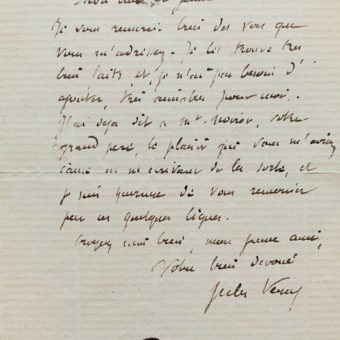 Je vous remercie bien des vers que
vous m'adressez. Je les trouve très
bien faits, et je n'ai pas besoin d'
ajouter, très aimables pour moi.
J'ai déjà dit à Mr. votre
grand père, le plaisir que vous m'aviez
causé en m'écrivant de la sorte, et
je suis heureux de vous remercier
par ces quelques lignes.
Croyez moi bien, mon jeune ami,
Votre bien dévoué
Jules Verne